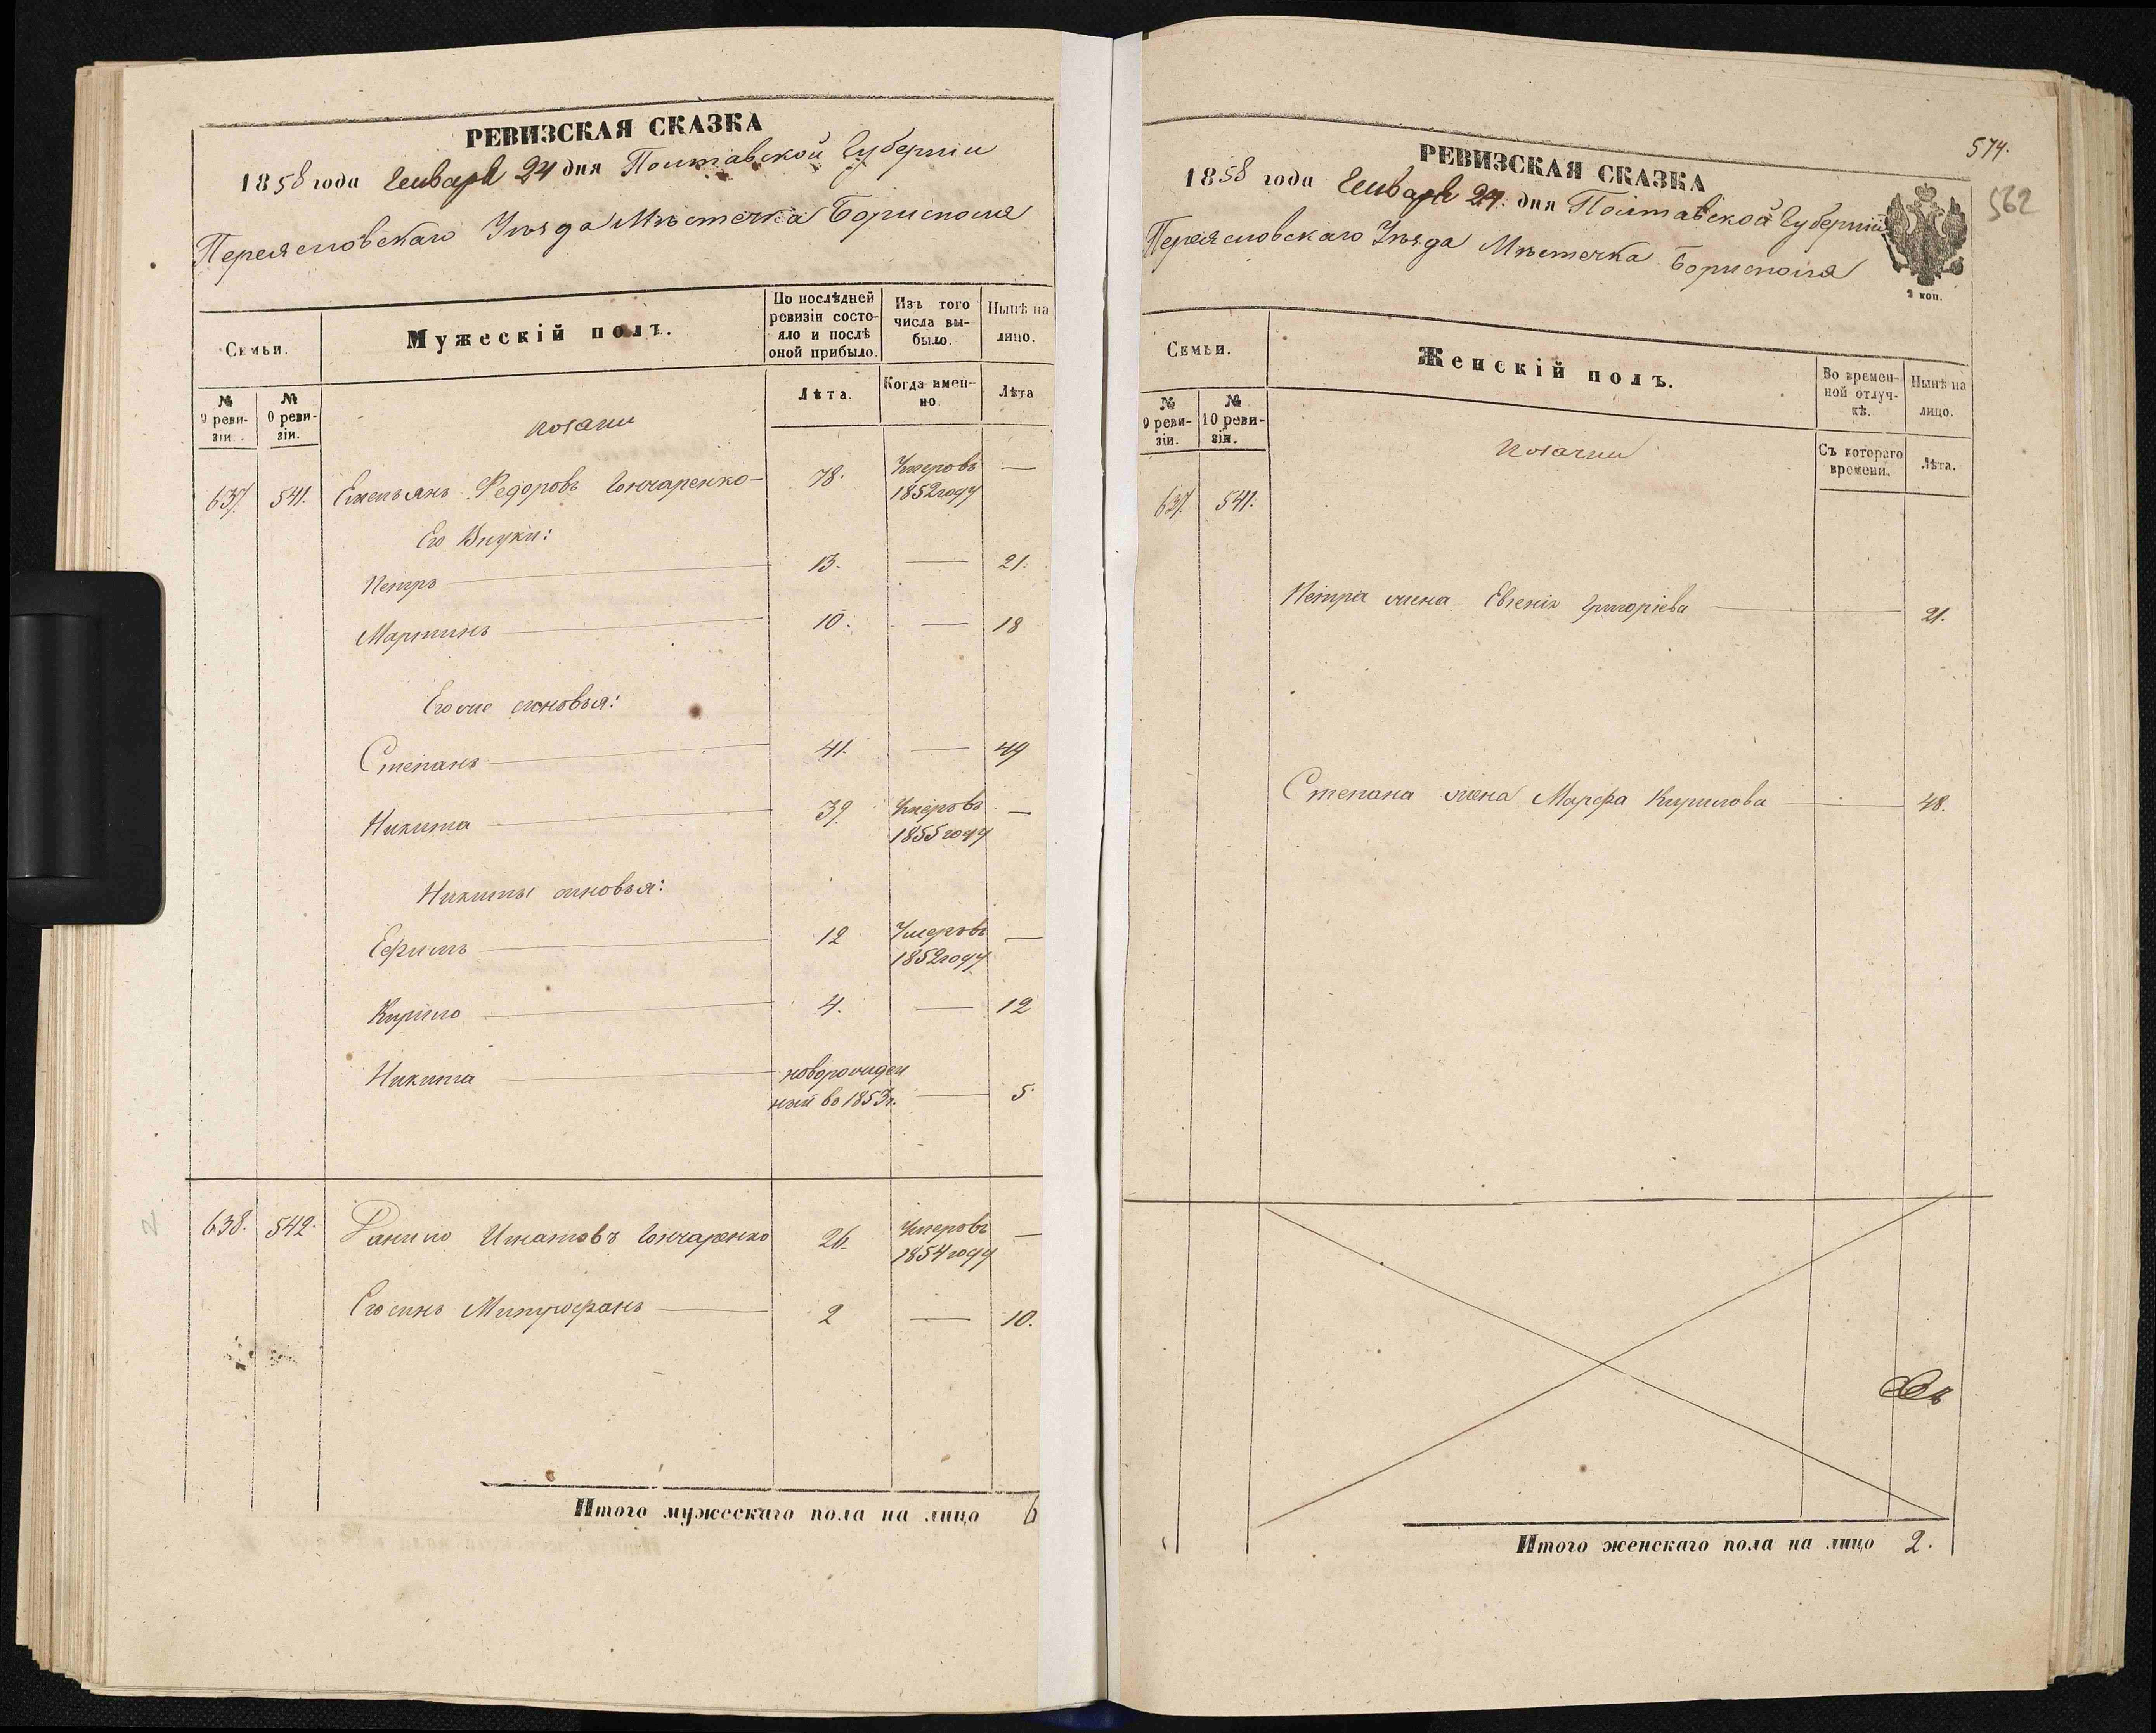 РЕВИЗСКАЯ СКАЗКА
1858 года Генваря 24 дня Полтавской Губерніи
Переясловскаго Уѣзда Мѣстечка Борисполя
Семьи.
Мужескій полъ.
По послѣдней ревизіи состояло и послѣ оной прибыло.
Изъ того числа выбыло.
Нынѣ на лицо.
№ 9 ревизіи.
№ 0 ревизіи.
Козаки
Лѣта.
Когда именно.
Лѣта
637. 541. Емельянъ Федоровъ Гончаренко — 78. Умеръ въ 1852 году —
Его Внуки:
Петръ — 13. — 21.
Мартинъ — 10. — 18
Его же сыновья:
Степанъ — 41. — 49
Никита — 39. Умеръ въ 1855 году —
Никиты сыновья:
Ефимъ — 12 Умеръ въ 1852 году —
Кирило — 4. — 12
Никита — новорожден
ный въ 1853 г. — 5
638. 542. Данило Игнатовъ Гончаренко 26. Умеръ въ 1854 году —
Его сынъ Митрофанъ — 2 — 10.
Итого мужескаго пола на лицо 6
574.
562
РЕВИЗСКАЯ СКАЗКА
1858 года Генваря 24. дня Полтавской Губерніи
Переясловскаго Уѣзда Мѣстечка Борисполя
2 коп.
Семьи.
Женскій полъ.
Во временной отлучкѣ.
Нынѣ на лицо.
№ 9 ревизіи.
№ 10 ревизіи.
Козачки
Съ котораго времени.
Лѣта.
637. 541.
Петра жена Евгенія Григоріева — 21.
Степана жена Марфа Кирилова — 48.
Итого женскаго пола на лицо 2.